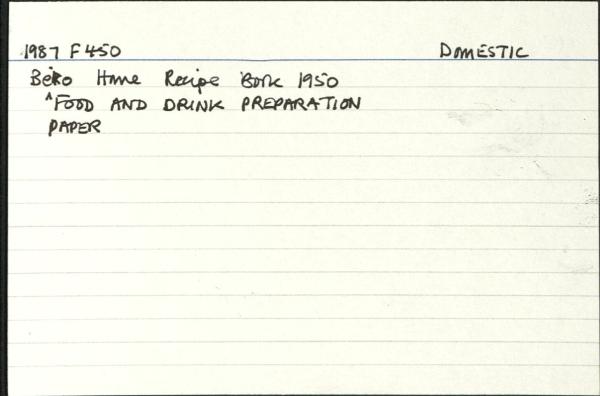 1987 F 450 DOMESTIC
Beko Home Recipe Book 1950
^FOOD AND DRINK PREPARATION
PAPER